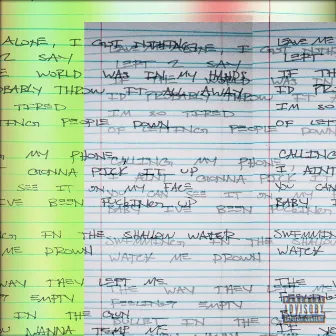 ALONE, I GOT NOTHING LEAVE ME
2 SAY LEFT 2 SAY LEFT
E WORLD WAS IN MY HANDS IF TH
OBABLY THROW IT ALL AWAY I'D PR
TIRED I'M SO TIRED I'M SO
TING PEOPLE DOWN OF PEOPLE OF LET
G MY PHONE CALLING MY PHONE CALLING
GONNA PICK IT UP GONNA PICK I AIN'T
SEE IT ON MY FACE YOU CAN SEE IT ON MY YOU CAN
I'VE BEEN FUCKING UP BABY I'VE BEEN BABY I
G IN THE SHALLOW WATER SWIMMING IN THE SWIMMING
ME DROWN WATCH ME DROWN WATCH
WAY THEY LEFT ME THE WAY THEY LEFT THE
G EMPTY FEELING EMPTY
IN THE GUN BULLET IN THE GUN
WANNA TEMP ME
PARENTAL
ADVISORY
EXPLICIT CONTENT